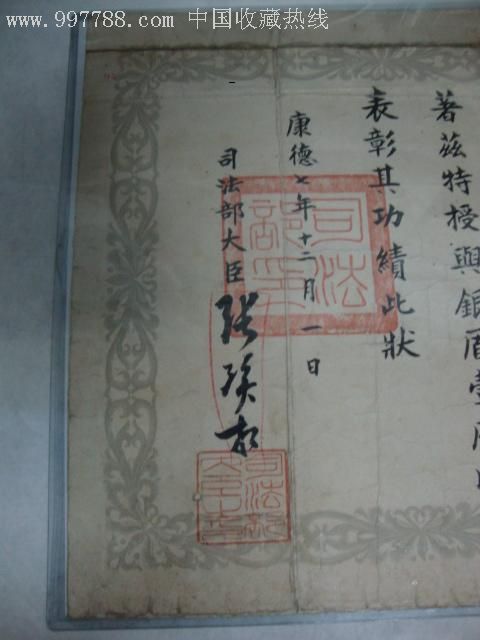 www.997788.com 中国收藏热线
著茲特授與銀盾壹
表彰其功績此狀
康德七年十二月一日
司法部大臣 張煥相
司法部印
司法部